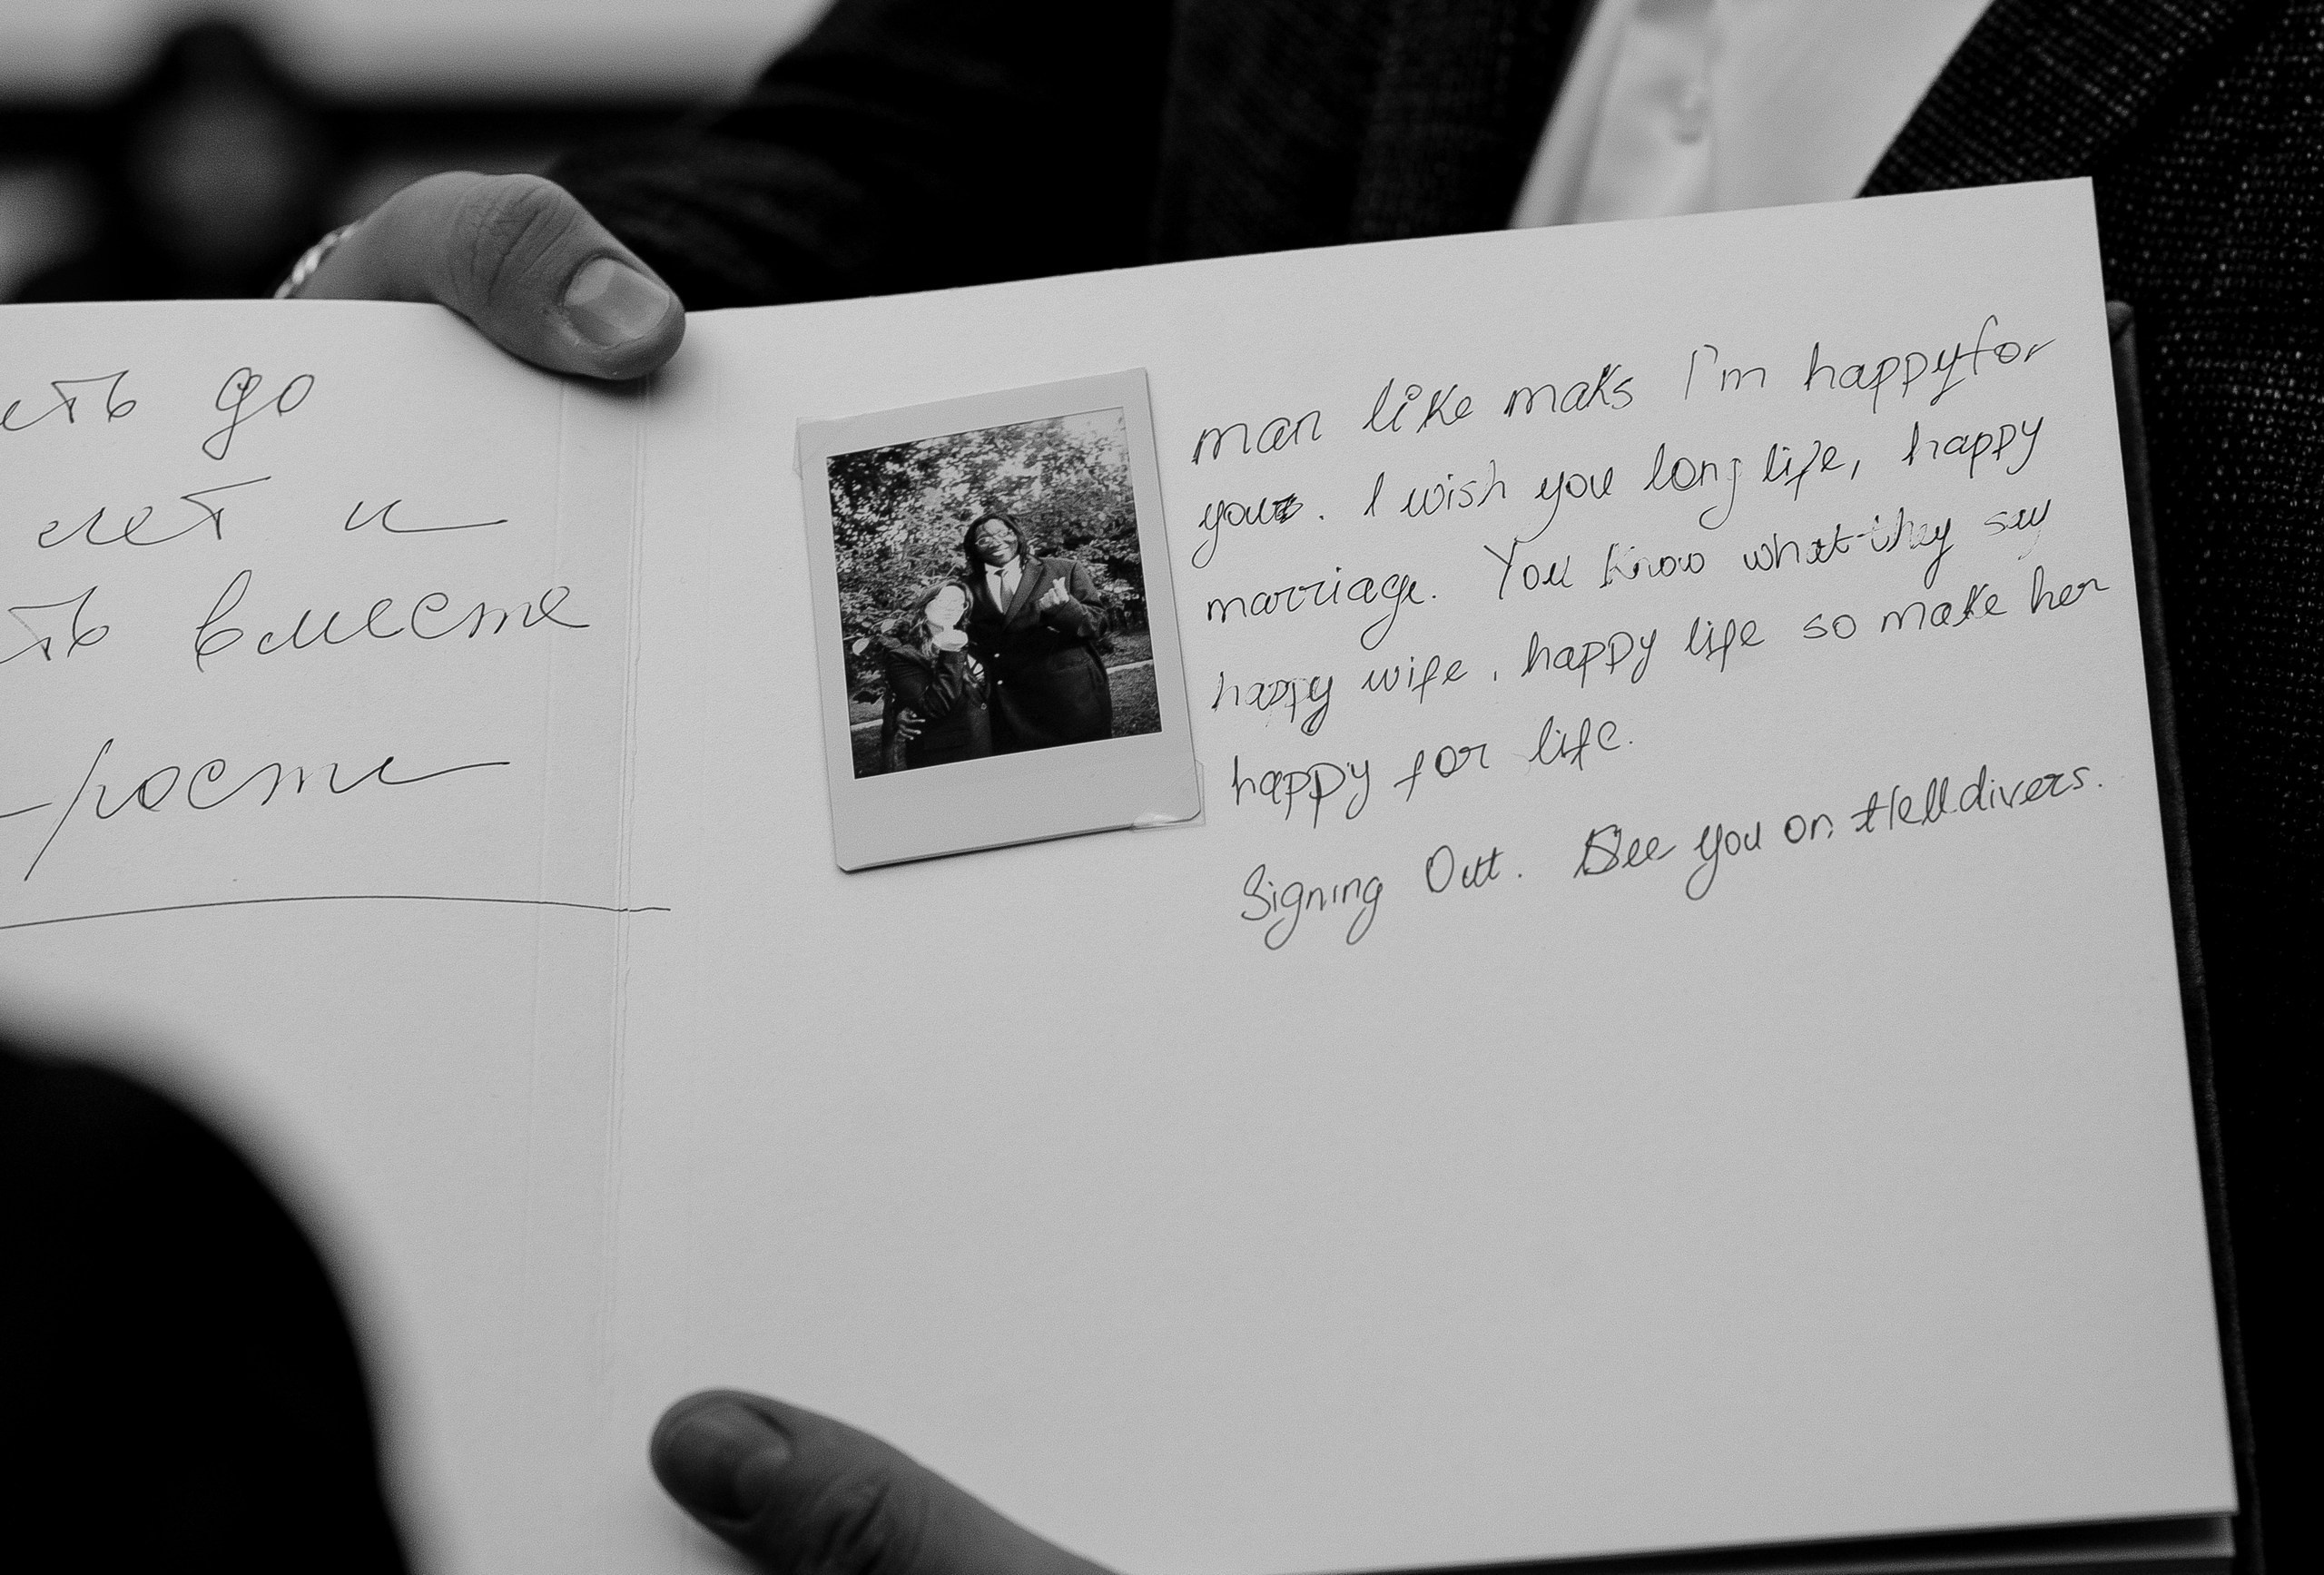 до
лет и
вместе
man like maks I'm happy for
you. I wish you long life, happy
marriage. You know what they say
happy wife, happy life so make her
happy for life.
Signing Out. See you on Helldivers.